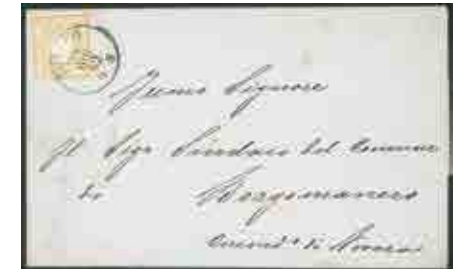 Signore
Il Sigr Sindaco del Comune
di Borgomanero
Circond.º di Novara